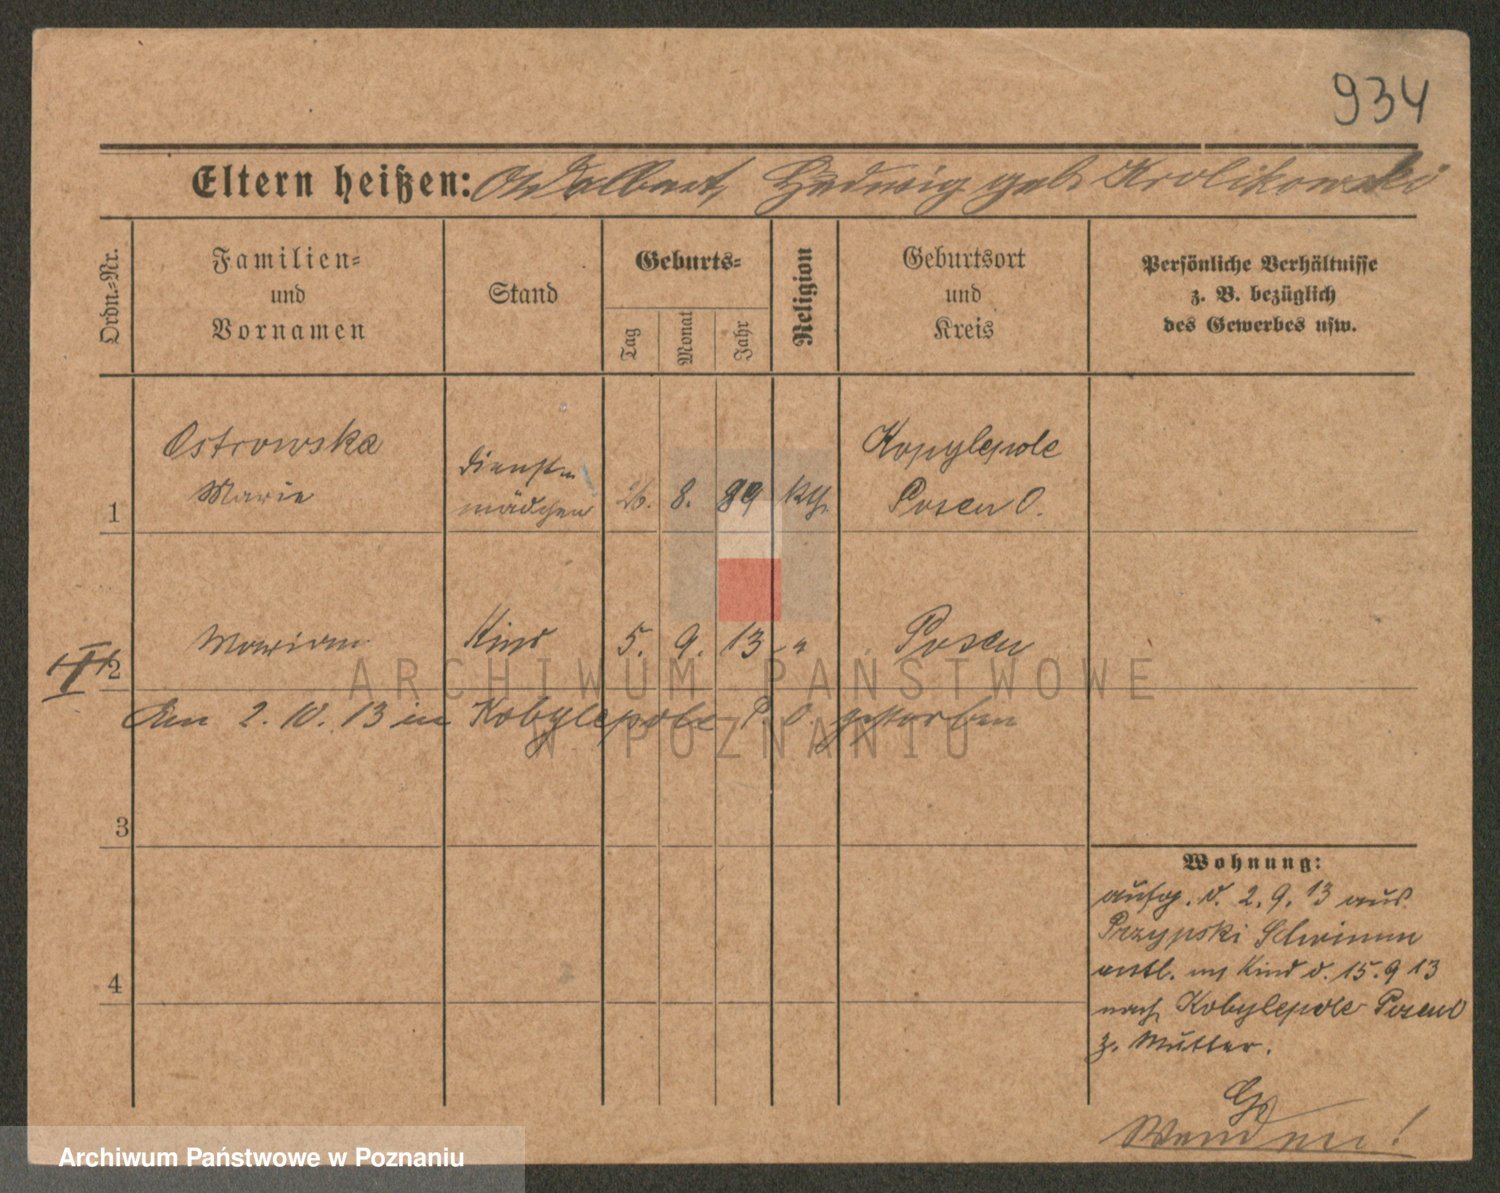 934
Eltern heißen: Adalbert, Hedwig geb Krolikowski
Ordn.-Nr.
Familien- und Vornamen
Stand
Geburts-
Tag
Monat
Jahr
Religion
Geburtsort und Kreis
Persönliche Verhältnisse
z. B. bezüglich
des Gewerbes usw.
Ostrowska
Marie
Dienst-
mädchen
8. 89 kth.
Kopylepole
Posen O.
1
Marian Kind 5. 9. 13 "
Posen
2
Am 2. 10. 13 in Kobylepole P. O. gestorben
3
Wohnung:
aufg. d. 2. 9. 13 aus
Przypski
entl. m Kind d. 15. 9 13
nach Kobylepole Posen O
z. Mutter.
4
Wenden!
ARCHIWUM PAŃSTWOWE
W POZNANIU
Archiwum Państwowe w Poznaniu